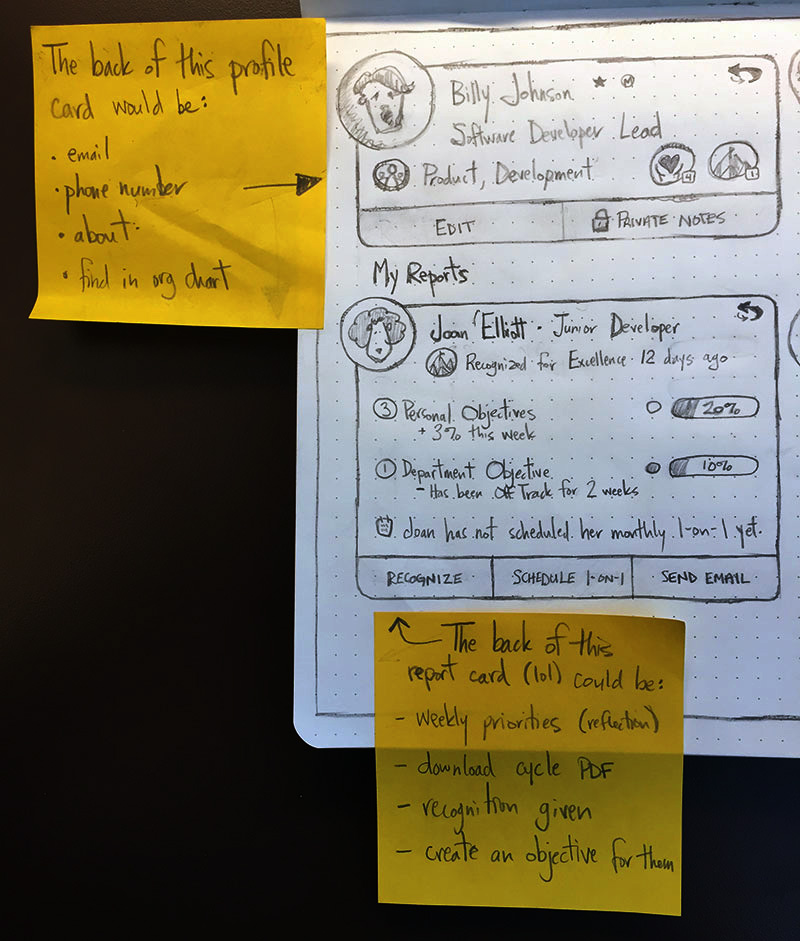 The back of this profile
card would be:
• email
• phone number
• about
• find in org chart
Billy Johnson ★ M
Software Developer Lead
Product, Development 4 1
EDIT
PRIVATE NOTES
My Reports
Joan Elliott - Junior Developer
Recognized for Excellence 12 days ago
3 Personal Objectives 20%
+ 3% this week
1 Department Objective 10%
- Has been Off Track for 2 weeks
Joan has not scheduled her monthly 1-on-1 yet.
RECOGNIZE
SCHEDULE 1-ON-1
SEND EMAIL
The back of this
report card (lol) could be:
- weekly priorities (reflection)
- download cycle PDF
- recognition given
- create an objective for them